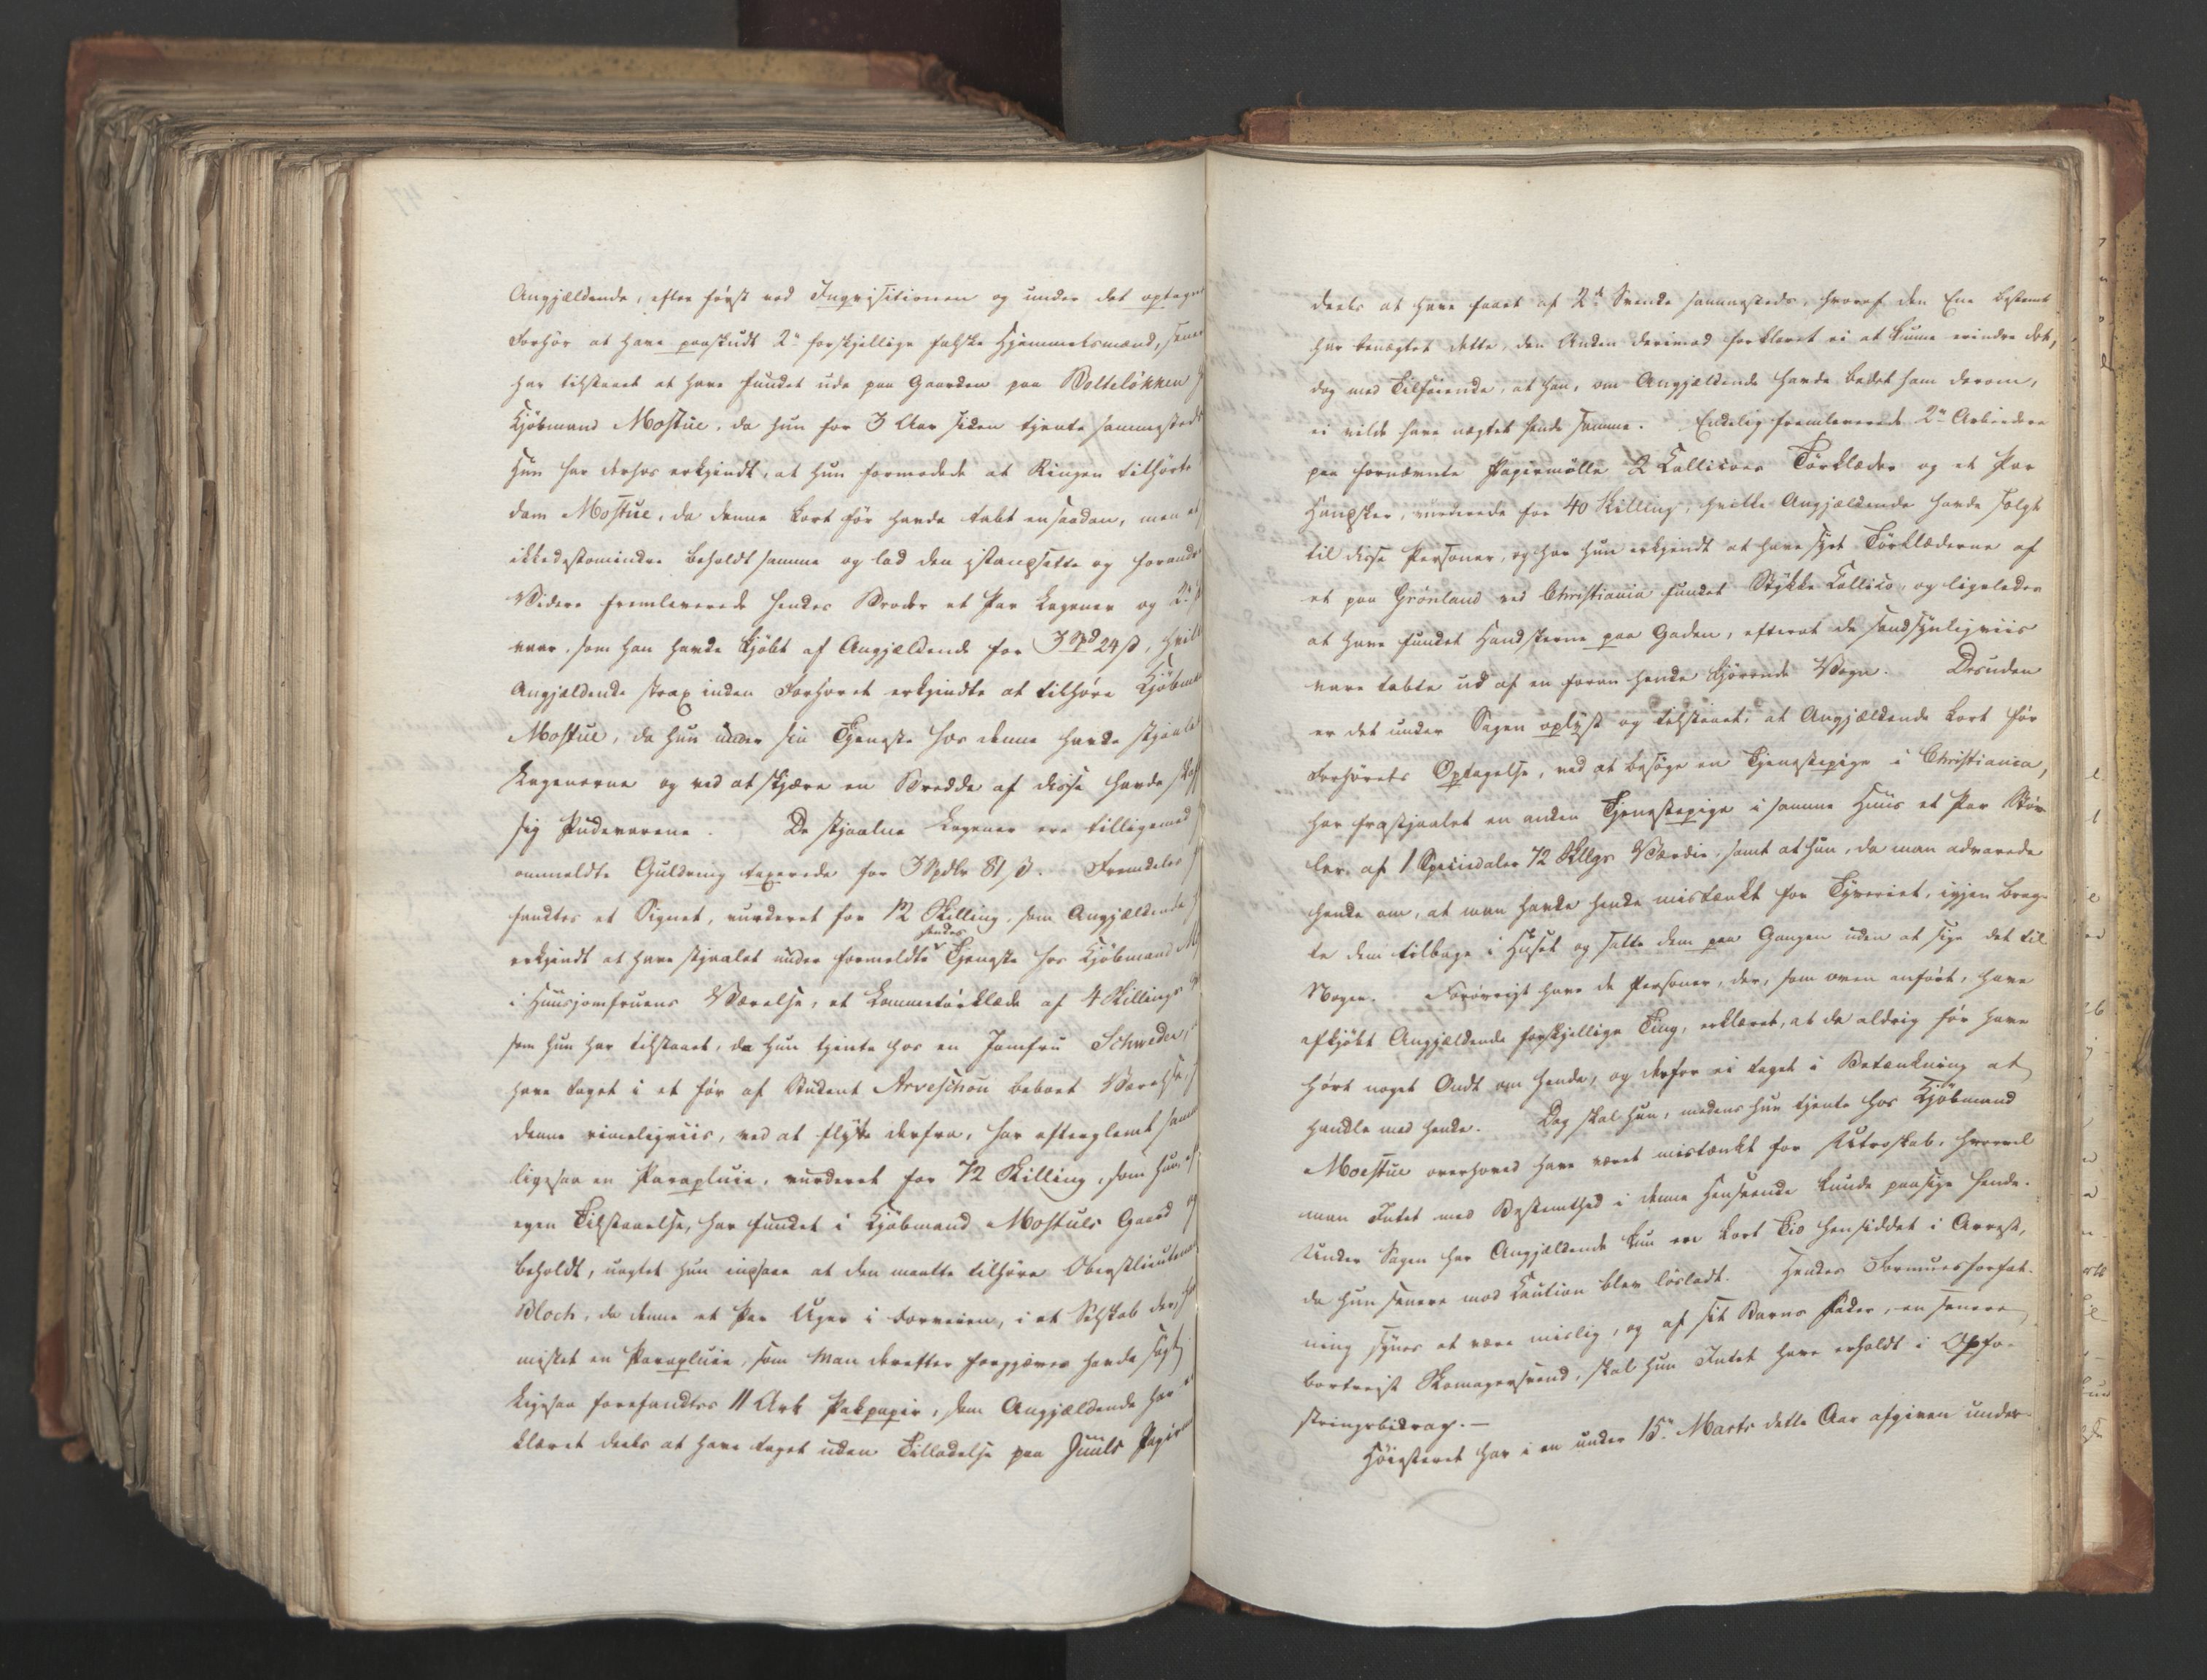 Angjældende, efter først ved Inqvisitionen og under det optagne
Forhör at have paaskudt 2de forskjellige falske Hjemmelsmænd, senere
har tilstaaet at have fundet ude paa Gaarden paa Bolteløkken
Kjöbmand Mostue, da hun for 3 Aar siden tjente sammesteds
Hun har derhos erkjendt, at hun formodede at Ringen tilhörte
dam Mostue, da denne kort før havde tabt en saadan, men at
ikkedestomindre beholdt samme og lod den istandsætte og forandre
Videre fremleverede hendes Broder et Par Lagener og 2de
vaar, som han havde kjöbt af Angjældende for 3 Spd 24 ß, hvilke
Angjældende strax inden Forhöret erkjendte at tilhöre Kjöbmand
Mostue, da hun under sin Tjeneste hos denne havde stjaalet
Lagenerne og ved at skjære en Bredde af disse havde skaffet
sig Pudevarene. De stjaalne Lagener ere tilligemed
ommeldte Guldring taxerede for 3 Spdlr 81 ß. Fremdeles
fandtes et Signet, vurderet for 12 Skilling, som Angjældende
erkjendt at have stjaalet under formeldte hendes Tjeneste hos Kjöbmand
i Huusjomfruens Værelse, et Lommetörklæde af 4 Skillings
som hun har tilstaaet, da hun tjente hos en Jomfru Schweder,
have taget i et før af Student Arveschou beboet Værelse,
denne rimeligviis, ved at flytte derfra, har efterglemt samme
ligesaa en Parapluie, vurderet for 72 Skilling, som hun, efter
egen Tilstaaelse, har fundet i Kjöbmand Mostues Gaard og
beholdt, uagtet hun indsaae at den maatte tilhöre Oberstlieutenant
Bloch, da denne et Par Uger i Forveien, i et Selskab der, havde
mistet en Parapluie, som man derefter forgjæves havde sögt
Ligesaa forefandtes 11 Ark Pakpapir, som Angjældende har
klæret deels at have taget uden Tilladelse paa Juuls Papir
deels at have faaet af 2de Svende sammesteds, hvoraf den Ene bestemt
har benægtet dette, den Anden derimod forklaret ei at kunne erindre det,
dog med Tilföiende, at han, om Angjældende havde bedet ham derom,
ei vilde have nægtet hende samme. Endelig fremleverede 2de Arbeidere
paa fornævnte Papirmölle 2 Callicoes Törklæder og et Par
Handsker, vurderede for 40 Skilling, hvilke Angjældende havde solgt
til disse Personer, og har hun erkjendt at have syet Törklæderne af
et paa Grönland ved Christiania fundet Stykke Callico, og ligeledes
at have fundet Handskerne paa Gaden, efterat de sandsynligviis
vare tabte ud af en foran hende kjörende Vogn. Desuden
er det under Sagen oplyst og tilstaaet, at Angjældende kort för
Forhörets Optagelse, ved at besöge en Tjenestepige i Christiania,
har frastjaalet en anden Tjenestepige i samme Huus et Par Støv-
ler af 1 Speciedaler 72 Skllgs Værdie, samt at hun, da man advarede
hende om, at man havde hende mistænkt for Tyveriet, igjen brag-
te dem tilbage i Huset og satte dem paa Gangen uden at sige det til
Nogen. Forövrigt have de Personer, der, som oven anført, have
afkjöbt Angjældende forskjellige Ting, erklæret, at de aldrig før have
hört noget Ondt om hende, og derfor ei taget i Betænkning at
handle med hende. Dog skal hun, medens hun tjente hos Kjöbmand
Moestue overhoved have været mistænkt for Utroskab, hvorvel
man Intet med Bestemthed i denne Henseende kunde paasige hende.
Under Sagen har Angjældende kun en kort Tid hensiddet i Arrest,
da hun senere mod Caution blev lösladt. Hendes Formuesforfat-
ning synes at være mislig, og af sit Barns Fader, en senere
bortreist Skomagersvend, skal hun Intet have erholdt i Opfo-
stringsbidrag.—
Höiesteret har i en under 15de Marts dette Aar afgiven under-